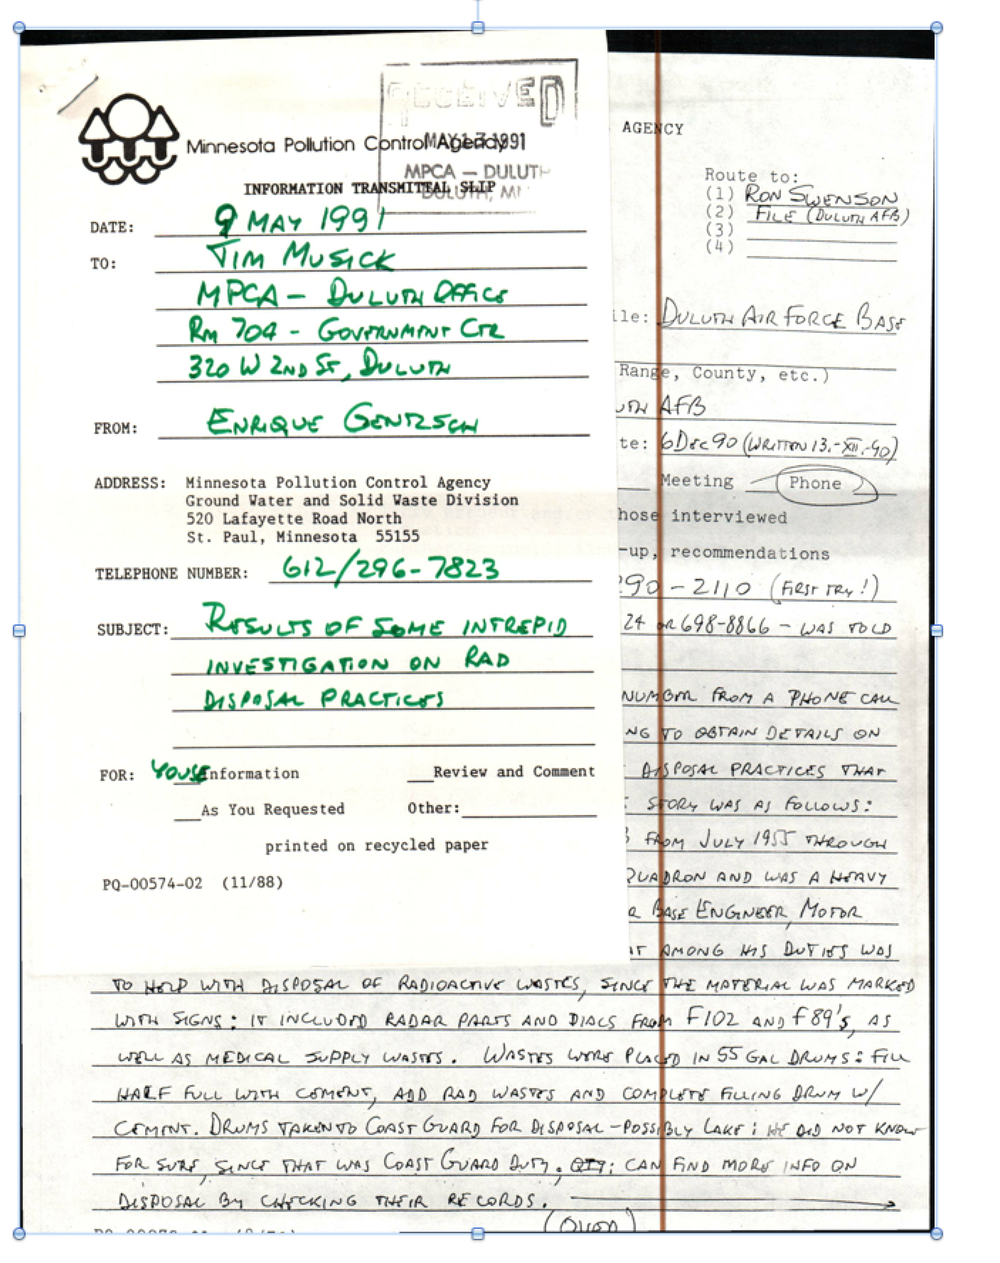 RECEIVED
MAY 13 1991
MPCA — DULUTH
DULUTH, MN
Minnesota Pollution Control Agency
INFORMATION TRANSMITTAL SLIP
DATE: 9 MAY 1991
TO: TIM MUSICK
MPCA - DULUTH OFFICE
RM 704 - GOVERNMENT CTR
320 W 2ND ST, DULUTH
FROM: ENRIQUE GENTZSCH
ADDRESS: Minnesota Pollution Control Agency
Ground Water and Solid Waste Division
520 Lafayette Road North
St. Paul, Minnesota 55155
TELEPHONE NUMBER: 612/296-7823
SUBJECT: RESULTS OF SOME INTREPID
INVESTIGATION ON RAD
DISPOSAL PRACTICES
FOR: YOUSE Information
Review and Comment
As You Requested
Other:
printed on recycled paper
PQ-00574-02 (11/88)
AGENCY
Route to:
(1) RON SWENSON
(2) FILE (DULUTH AFB)
(3)
(4)
ile: DULUTH AIR FORCE BASE
Range, County, etc.)
UTH AFB
te: 6 DEC 90 (WRITTEN 13-XII-90)
Meeting Phone
hose interviewed
-up, recommendations
290-2110 (FIRST TRY!)
24 OR 698-8866 - WAS TOLD
NUMBER FROM A PHONE CALL
NG TO OBTAIN DETAILS ON
DISPOSAL PRACTICES THAT
STORY WAS AS FOLLOWS:
FROM JULY 1955 THROUGH
QUADRON AND WAS A HEAVY
R BASE ENGINEER, MOTOR
AT AMONG HIS DUTIES WAS
TO HELP WITH DISPOSAL OF RADIOACTIVE WASTES, SINCE THE MATERIAL WAS MARKED
WITH SIGNS; IT INCLUDED RADAR PARTS AND DIALS FROM F102 AND F89's, AS
WELL AS MEDICAL SUPPLY WASTES. WASTES WERE PLACED IN 55 GAL DRUMS: FILL
HALF FULL WITH CEMENT, ADD RAD WASTES AND COMPLETE FILLING DRUM W/
CEMENT. DRUMS TAKEN TO COAST GUARD FOR DISPOSAL - POSSIBLY LAKE; HE DID NOT KNOW
FOR SURE, SINCE THAT WAS COAST GUARD DUTY. QTY; CAN FIND MORE INFO ON
DISPOSAL BY CHECKING THEIR RECORDS.
(OVER)